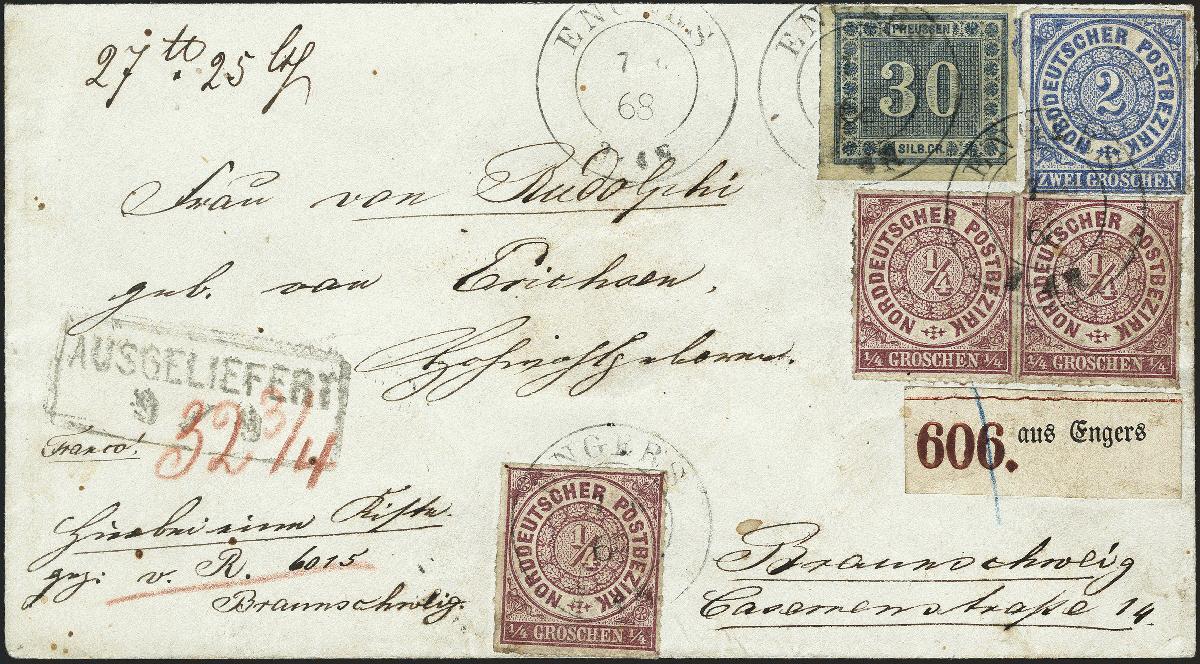 27 tt. 25 lth
ENGERS
7
68
ENGERS
PREUSSEN
30
SILB.GR.
NORDDEUTSCHER POSTBEZIRK
2
ZWEI GROSCHEN
Frau von Rudolphi
geb. von Erichsen,
Hochwohlgeboren.
NORDDEUTSCHER POSTBEZIRK
1/4
1/4 GROSCHEN 1/4
NORDDEUTSCHER POSTBEZIRK
1/4
1/4 GROSCHEN 1/4
AUSGELIEFERT
9
32 3/4
Franco!
606. aus Engers
Hierbei eine Kiste
gez: v. R. 6015
Braunschweig.
ENGERS
NORDDEUTSCHER POSTBEZIRK
1/4
1/4 GROSCHEN 1/4
Braunschweig
Casernenstraße 14.